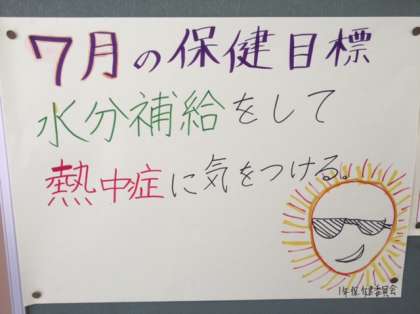 7月の保健目標
水分補給をして
熱中症に気をつける。
1年保健委員会